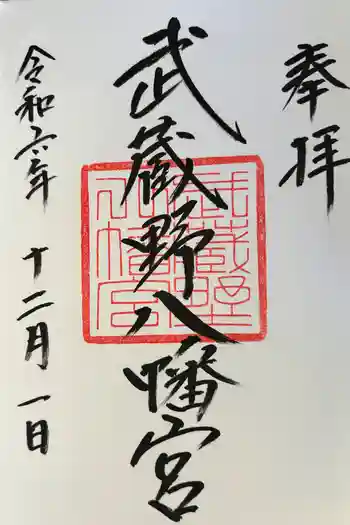 奉拝
武蔵野八幡宮
武蔵野八幡宮
令和六年 十二月一日